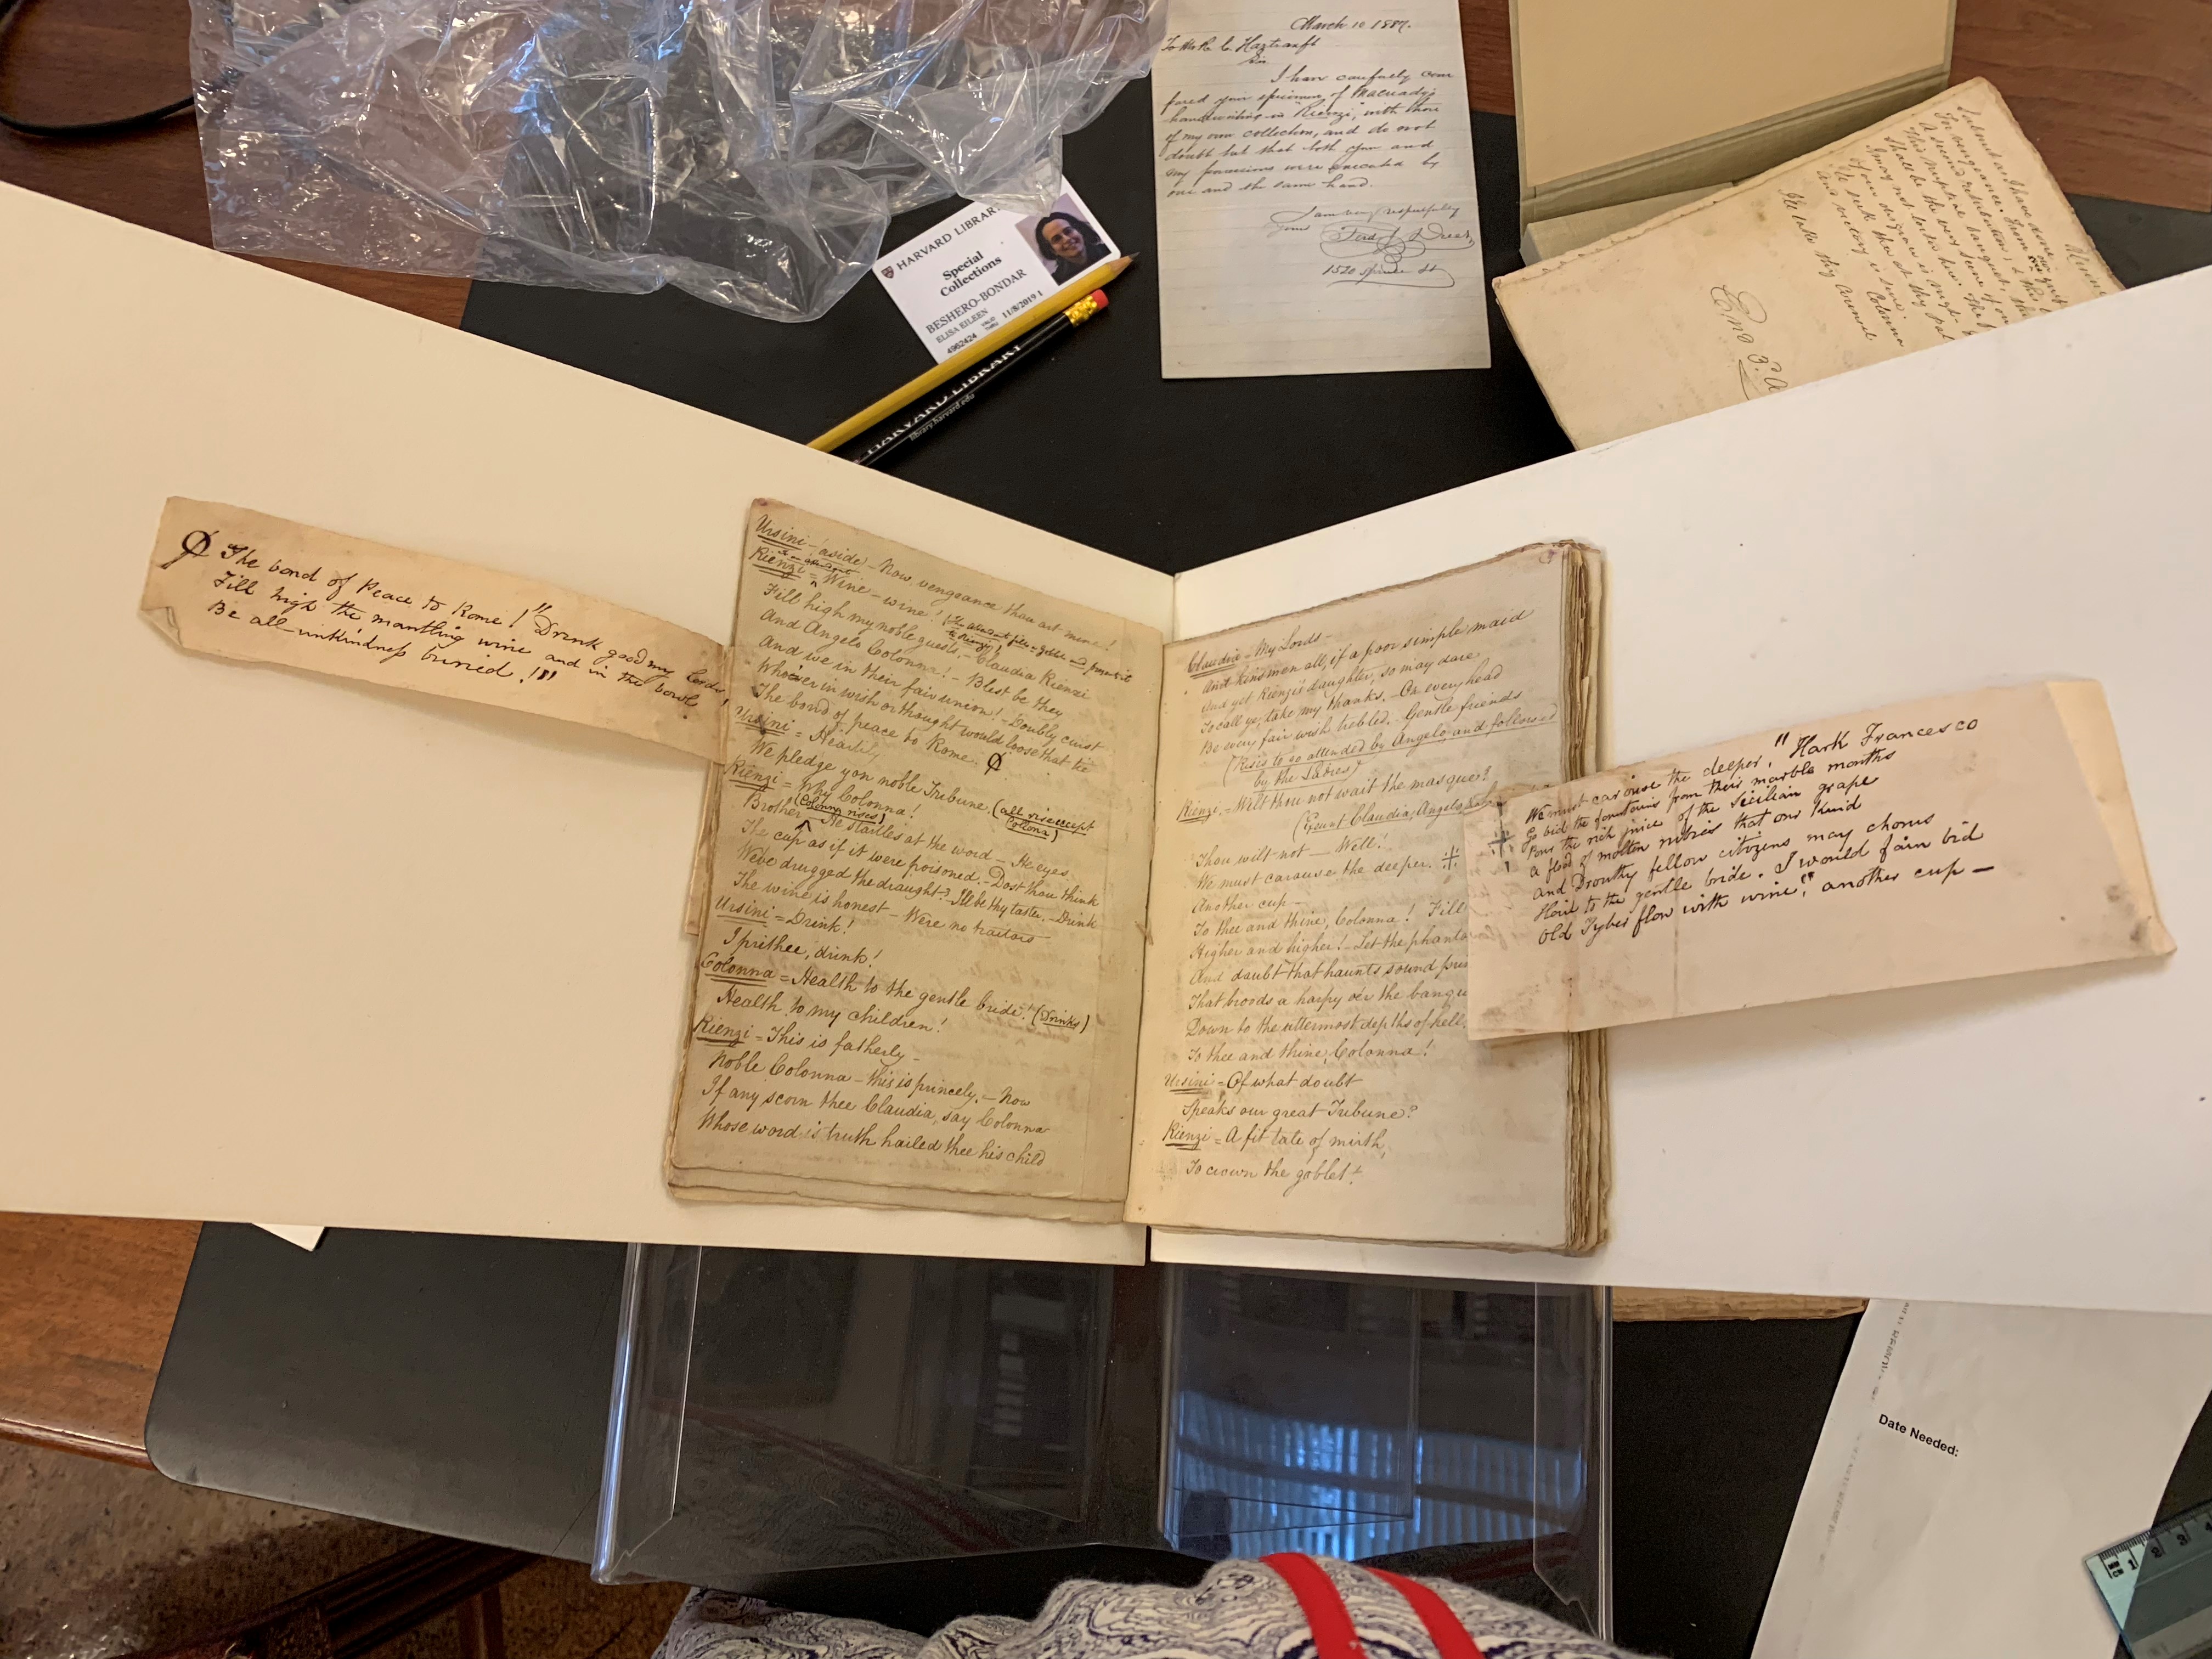 March 10 1887.
To Mr R. C. Haztranft
Sir
I have carefully com
pared your specimen of Macready's
handwriting in "Rienzi", with those
of my own collection, and do not
doubt but that both your and
my possessions were executed by
one and the same hand.
I am very respectfully
yours Ferd. J. Dreer
1520 Spruce St
HARVARD LIBRAR
Special
Collections
BESHERO-BONDAR
ELISA EILEEN
VALID THRU 11/8/2019 1
4962424
HARVARD LIBRARY
library.harvard.edu
In vengeance.
A second retribution; & this
This nuptial banquet,
Shall be the very scene
I may not enter here.
of your disgrace is
I'll seek thee at thy
And victory is sure. Colonna
I'll take thy counsel
End 3. A
The bond of Peace to Rome!" Drink good my Lords!
Fill high the mantling wine and in the bowl
Be all unkindness buried!!"
Ursini - (aside) - Now vengeance thou art mine!
Rienzi = Wine - wine!
Fill high my noble guests. - Claudia Rienzi
And Angelo Colonna! - Blest be they
And we in their fair union! - Doubly curst
Whoever in wish or thought would loose that tie
The bond of peace to Rome.
Ursini = Heartily
We pledge you noble Tribune. (all rise except Colonna)
Rienzi = Why Colonna!
(Colonna rises)
Brother - He startles at the word - He eyes
The cup as if it were poisoned. - Dost thou think
We've drugged the draught? I'll be thy taster. - Drink
The wine is honest - Were no traitors
Ursini = Drink!
I prithee, drink!
Colonna = Health to the gentle bride! (Drinks)
Health to my children!
Rienzi = This is fatherly -
Noble Colonna - this is princely. - Now
If any scorn thee Claudia, say Colonna
Whose word is truth hailed thee his child
Claudia - My Lords -
And kinsmen all, if a poor simple maid
And yet Rienzi's daughter, so may dare
To call ye, take my thanks. - On every head
Be every fair wish trebled. - Gentle friends
(Rises to go attended by Angelo and followed
by the Ladies)
Rienzi. = Wilt thou not wait the masque?
(Exeunt Claudia, Angelo,
Thou wilt not - Well!
We must carouse the deeper.
Another cup -
To thee and thine, Colonna! Fill
Higher and higher! - Let the phanto
And doubt that haunts sound
That broods a harpy o'er the banqu
Down to the uttermost depths of hell.
To thee and thine, Colonna!
Ursini = Of what doubt
Speaks our great Tribune?
Rienzi = A fit tale of mirth,
To crown the goblet!
We must carouse the deeper, "Hark Francesco
Go bid the fountains from their marble mouths
Pour the rich juice of the Sicilian grape
a flood of molten rubies that our kind
and Drouthy fellow citizens may chorus
Hail to the gentle bride. I would fain bid
Old Tyber flow with wine!" another cup -
Date Needed:
1 2 3 4